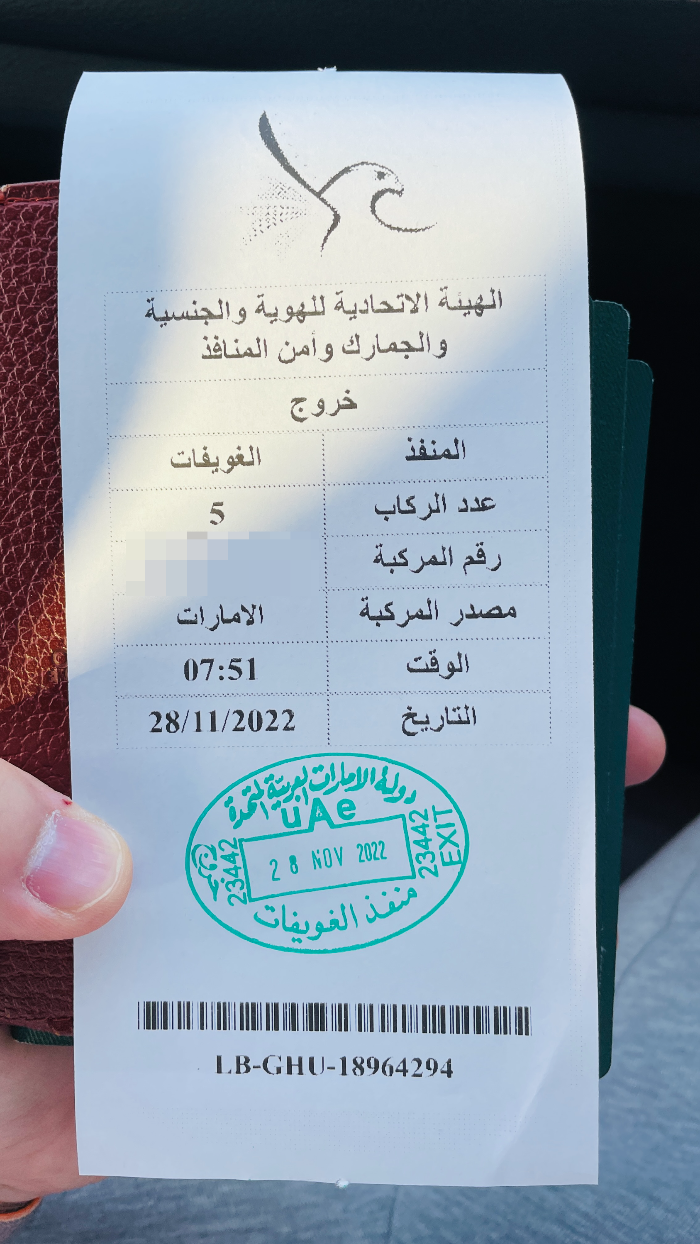 الهيئة الاتحادية للهوية والجنسية
والجمارك وأمن المنافذ
خروج
المنفذ الغويفات
عدد الركاب 5
رقم المركبة
مصدر المركبة الامارات
الوقت 07:51
التاريخ 28/11/2022
دولة الامارات العربية المتحدة
UAe
23442
28 NOV 2022
23442
EXIT
خروج
منفذ الغويفات
LB-GHU-18964294